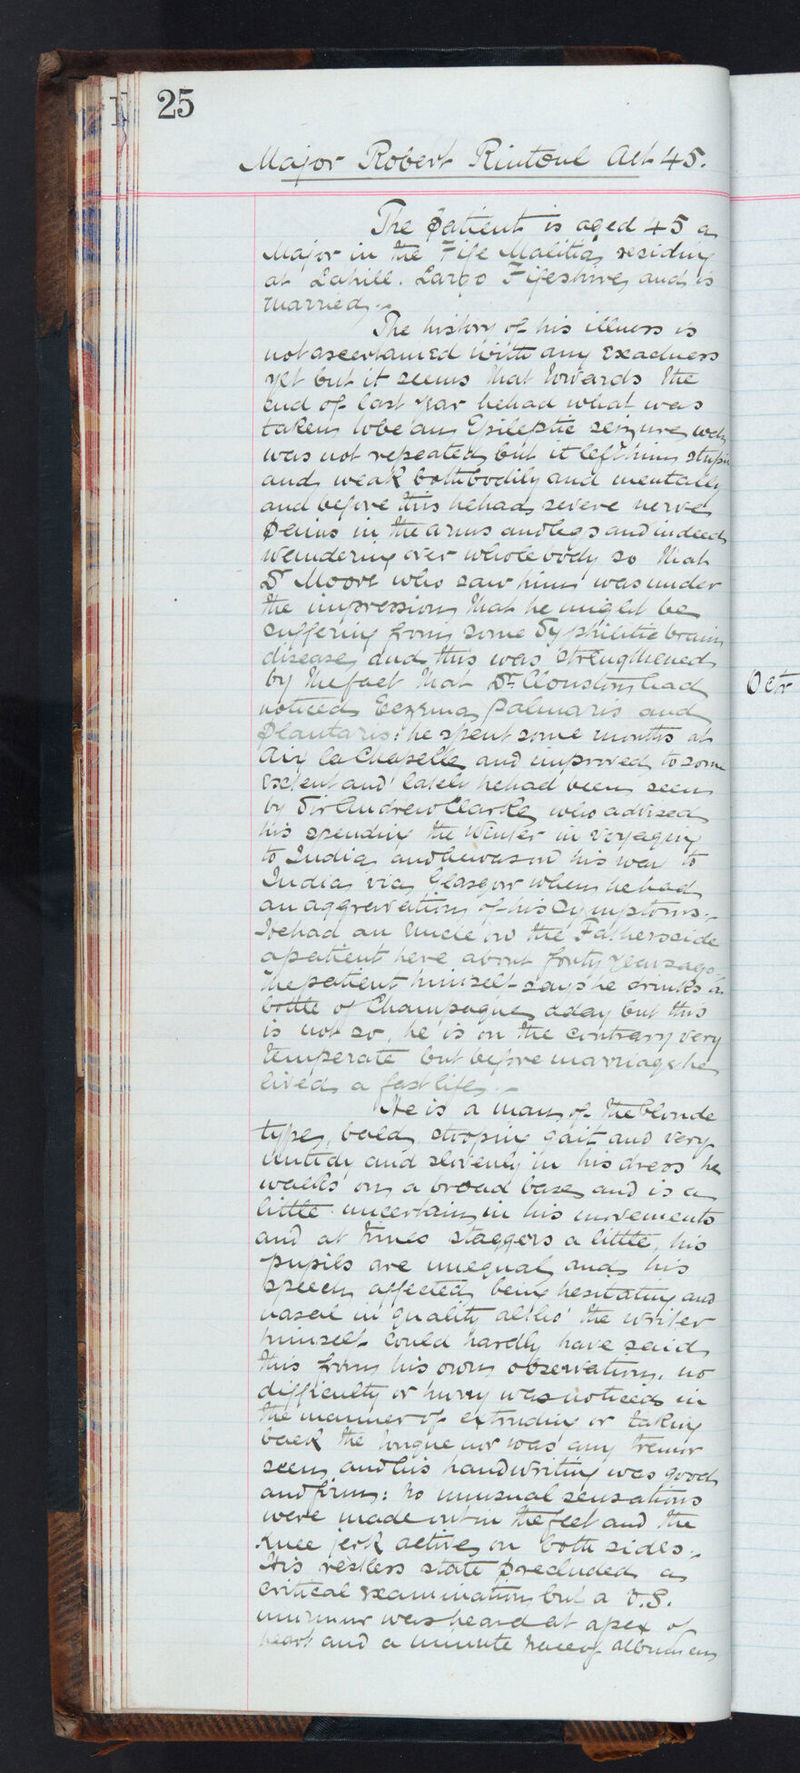 25
Major Robert Rintoul Aet 45.
The patient is aged 45 a
Major in the Fife Malitia, residing
at Lahill. Largo Fifeshire, and is
married.-
The history of his illness is
not ascertained with any exactness
yet but it seems that towards the
end of last year he had what was
taken to be an Epileptic seizure wch
was not repeated, but it left him stupid
and weak both bodily and mentally
and before this he had severe nerve
pains in the arms and legs and indeed
wandering over whole body so that
Dr Moore who saw him was under
the impression that he might be
suffering from some Syphilitic brain
disease, and this was strengthened
by the fact that Dr Clouston had
noticed Eczema palmaris and
plantaris: he spent some months at
Aix la Chapelle and improved to some
extent and lately he had been seen
by Sir Andrew Clarke, who advised
his spending the Winter in voyaging
to India, and he was on his way to
India via Glasgow when he had
an aggravation of his symptoms.-
He had an Uncle on the Father's side
a patient here about forty years ago.
The patient himself says he drinks a
bottle of Champagne a day but this
is not so, he is on the contrary very
temperate but before marriage he
lived a fast life.-
He is a man of the blonde
type, bald, stooping gait and very
untidy and slovenly in his dress he
walks on a broad base, and is a
little uncertain in his movements
and at times staggers a little, his
pupils are unequal and his
speech affected being hesitating and
nasal in quality altho' the writer
himself could hardly have said
this from his own observation. no
difficulty or hurry was noticed in
the manner of extruding or taking
back the tongue nor was any tremor
seen, and his handwriting was good
and firm: no unusual sensations
were made out in the feet and the
knee jerk active on both sides.-
His restless state precluded a
critical examination but a V.S.
murmur was heard at apex of
heart and a minute trace of albumen
Octr